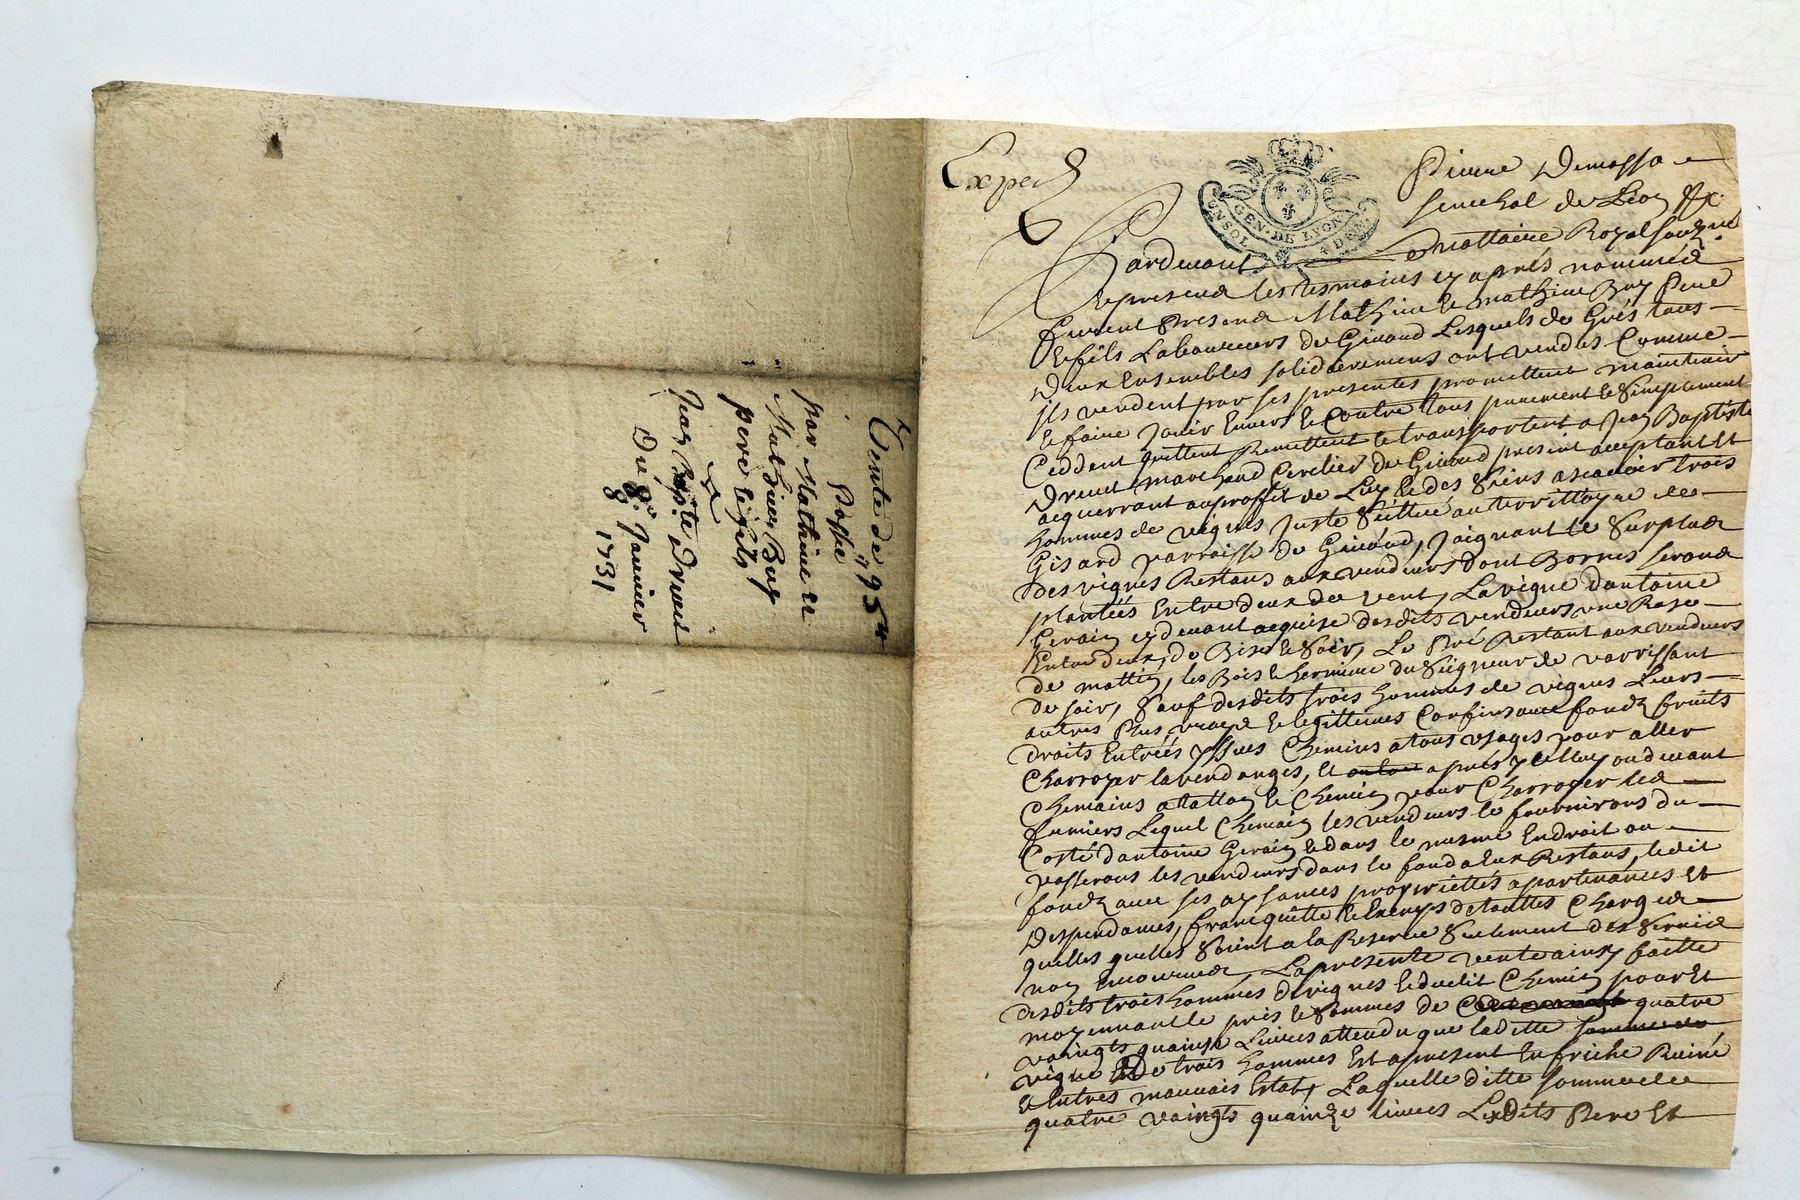 Vente de 95 ₶
Passé
par Mathieu et
Mathieu Buy
pere et fils
a
Jean Bapte. Drevet
Du 8e. Janvier
8.
1731
Exped
UN SOL
GEN. DE LYON
4 DEN.
Pardevant
Nottaire Royal
les tesmoins cy aprés nommés
furent presens Mathieu et mathieu Buy Pere
et fils Laboureurs de Lesquels de Grés tous
Deux Ensembles solidairement ont vendus Comme
ils vendent par ses presentes promettent maintenir
et faire Jouir Envers et Contre tous purement et Simplement
Ceddent quittent Remettent et transportent a Jean Baptiste
Drevet marchand de present acceptant et
acquerrant au proffit de Luy et des Siens ascavoir trois
hommes de vignes Juste Scittué au territtoyre de
Gisard parroisse de Joignant le Surplus
des vignes Restans aux vendeurs dont Bornes seront
plantées Entre deux de vent, La vigne dantoine
Gerain cy devant acquise desdits vendeurs une Rase
Entre deux, de Bise et Soir, Le Pré Restant aux vendeurs
de mattin, les Bois et hermiture du Seigneur de varrissant
de soir, Sauf desdits trois hommes de vignes Leurs
autres Plus vrays et legittimes Confins avec fondz fruits
droits Entrées yssues Chemins a tous usages pour aller
Charroyer la vendanges, et aprés
Chemains a tallon le Chemin pour Charroyer les
fumiers Lequel Chemain les vendeurs le fourniront du
Costé dantoine Gerain et dans le mesme Endroit ou
passerons les vendeurs dans le fond a Eux Restans, ledit
fondz avec ses aysances propriettés apartenances et
Despendances, franc quitte et Exemps de touttes Charges
quelles quelles Soient a la Reserve Seulement des Servis
non Encourues, La presente vente ainsy faitte
desdits trois hommes de vignes et dudit Chemin pour et
moyennant le pris et Sommes de quatre
vaingts quainze Livres attendu que laditte
vigne de trois hommes Est apresent En friche Ruiné
et Entres mauvais Estat, Laquelle ditte somme de
quatre vaingts quainze livres Lesdits Pere et